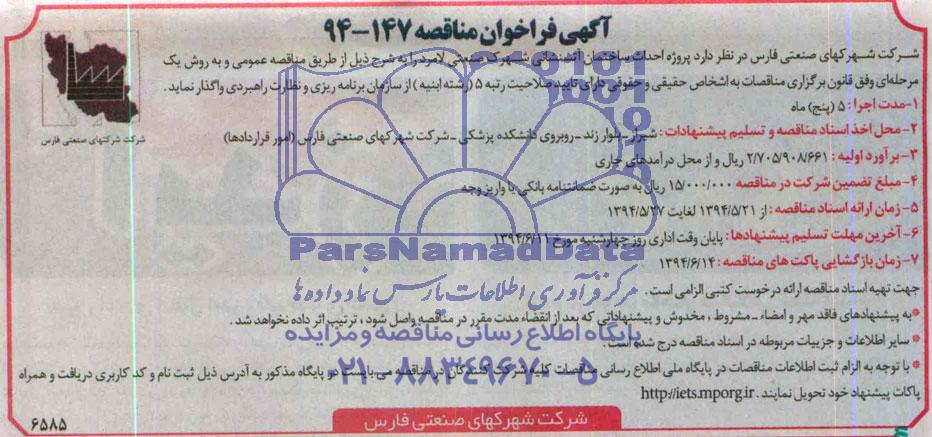 آگهی فراخوان مناقصه ۱۴۷-۹۴
شرکت شهرکهای صنعتی فارس در نظر دارد پروژه احداث ساختمان آتشنشانی شهرک صنعتی لامرد را به شرح ذیل از طریق مناقصه عمومی و به روش یک
مرحله‌ای وفق قانون برگزاری مناقصات به اشخاص حقیقی و حقوقی دارای تایید صلاحیت رتبه ۵ (رشته ابنیه) از سازمان برنامه ریزی و نظارت راهبردی واگذار نماید.
۱-مدت اجرا: ۵ (پنج) ماه
۲-محل اخذ اسناد مناقصه و تسلیم پیشنهادات: شیراز-بلوار زند-روبروی دانشکده پزشکی-شرکت شهرکهای صنعتی فارس (امور قراردادها)
۳-برآورد اولیه: ۲/۷۰۵/۹۰۸/۶۶۱ ریال و از محل درآمدهای جاری
۴-مبلغ تضمین شرکت در مناقصه ۱۵/۰۰۰/۰۰۰ ریال به صورت ضمانتنامه بانکی یا واریز وجه
۵-زمان ارائه اسناد مناقصه: از ۱۳۹۴/۵/۲۱ لغایت ۱۳۹۴/۵/۲۷
۶-آخرین مهلت تسلیم پیشنهادها: پایان وقت اداری روز چهارشنبه مورخ ۱۳۹۴/۶/۱۱
۷-زمان بازگشایی پاکت های مناقصه: ۱۳۹۴/۶/۱۴
جهت تهیه اسناد مناقصه ارائه درخواست کتبی الزامی است.
*به پیشنهادهای فاقد مهر و امضاء-مشروط، مخدوش و پیشنهاداتی که بعد از انقضاء مدت مقرر در مناقصه واصل شود، ترتیب اثر داده نخواهد شد.
* سایر اطلاعات و جزییات مربوطه در اسناد مناقصه درج شده است.
* با توجه به الزام ثبت اطلاعات مناقصات در پایگاه ملی اطلاع رسانی مناقصات کلیه شرکت کنندگان در مناقصه می بایست در پایگاه مذکور به آدرس ذیل ثبت نام و کد کاربری دریافت و همراه
پاکات پیشنهاد خود تحویل نمایند. http://iets.mporg.ir
شرکت شهرکهای صنعتی فارس
۶۵۸۵
شرکت شهرکهای صنعتی فارس
ParsNamadData
مرکز فرآوری اطلاعات پارس نماد داده ها
پایگاه اطلاع رسانی مناقصه و مزایده
۰۲۱-۸۸۳۴۹۶۷۰-۵